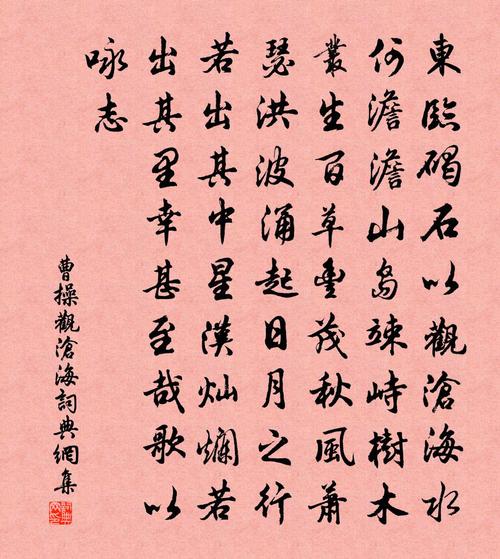 東臨碣石以觀滄海水
何澹澹山島竦峙樹木
叢生百草豐茂秋風蕭
瑟洪波涌起日月之行
若出其中星漢燦爛若
出其里幸甚至哉歌以
咏志
曹操觀滄海詞典網集